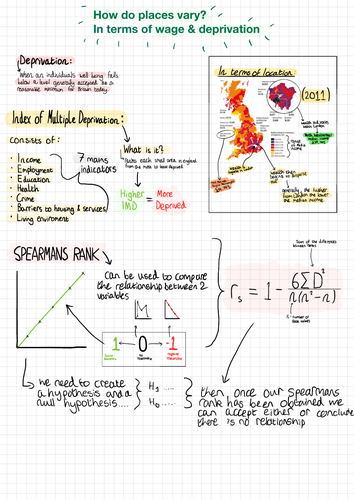 How do places vary?
In terms of wage & deprivation
Deprivation:
When an individuals well being falls
below a level generally accepted as a
reasonable minimum for Britain today.
In terms of location
(2011)
Index of Multiple Deprivation:
consists of:
• Income
• Employment
• Education
• Health
• Crime
• Barriers to housing & services
• Living enviroment
7 main
indicators
What is it?
Ranks each small area in england
from
to
deprived
Higher
IMD
=
More
Deprived
generally, the higher
from London the lower
the median income
SPEARMANS RANK
Can be used to compare
the relationship between 2
variables
1
0
-1
rs = 1 - 6ΣD²
n(n²-n)
Sum of the difference
between ranks
number of
data values
We need to create
a hypothesis and a
null hypothesis....
H1 ....
H0 ....
then, once our spearmans
rank has been obtained we
can accept either or conclude
there is no relationship